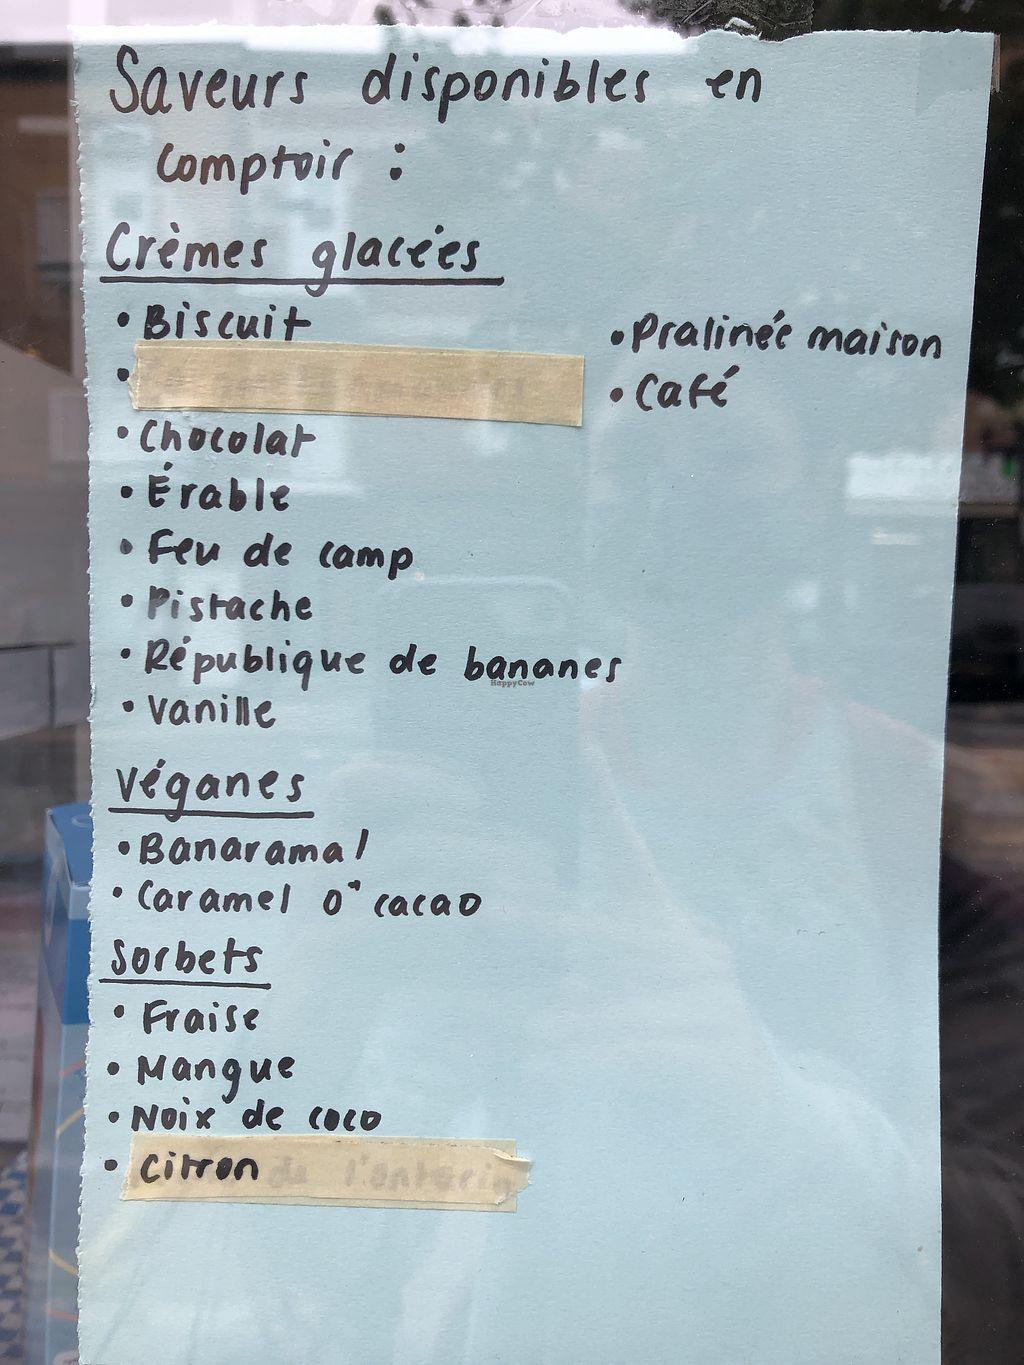 Saveurs disponibles en
comptoir :
Crèmes glacées
• Biscuit
•
• Chocolat
• Érable
• Feu de camp
• Pistache
• République de bananes
• Vanille
• Pralinée maison
• Café
Véganes
• Banarama!
• Caramel ô cacao
Sorbets
• Fraise
• Mangue
• Noix de coco
• Citron
HappyCow